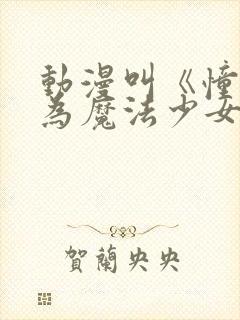 動漫叫《憧
為魔法少女
賀蘭央央